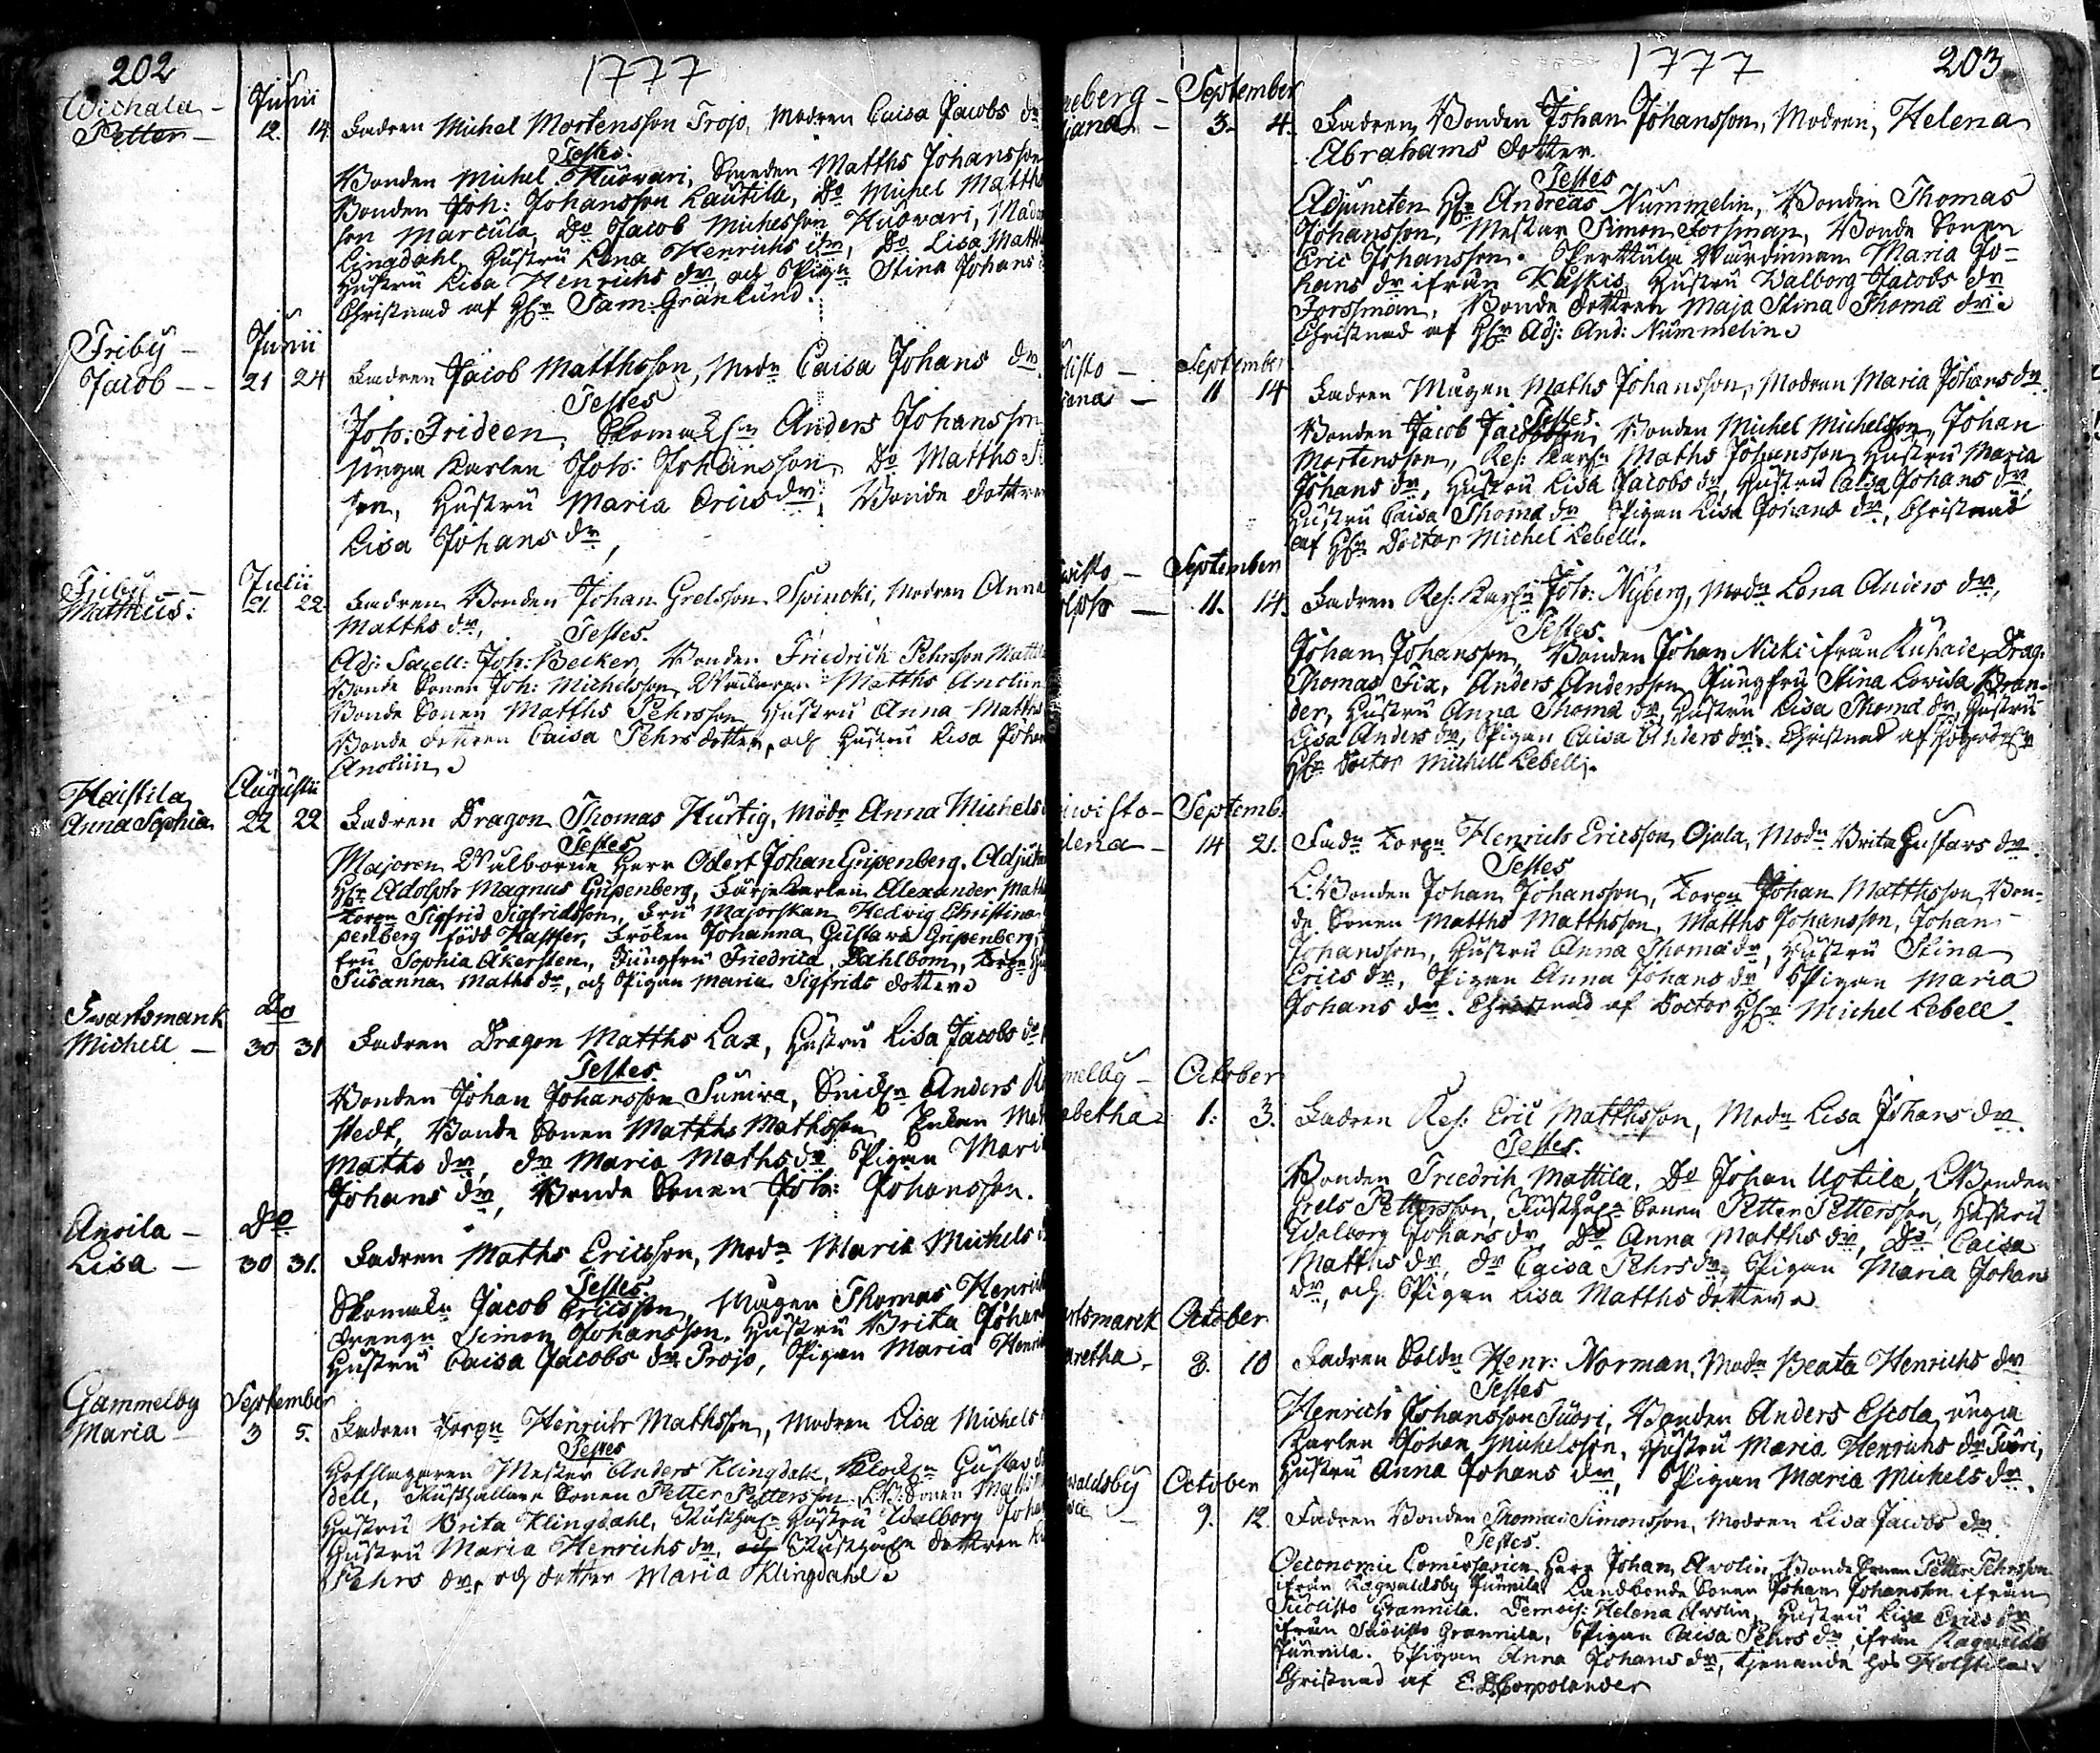 202
1777
Wichala -
Junii
Petter - 12. 14. Fadren Michel Mortensson Trojo, Modren Caisa Jacobs dr
Testes.
Bonden Michel Huovari, Bonden Matths Johansson
Bonden Joh: Johansson Lautila, Do Michel Matths
son Marcula, Do Jacob Michelsson Huovari, Mad
Lingdahl, Hustru Lena Henrichs dr, Do Lisa Matth
Hustru Lisa Henrichs dr, och Pigan Stina Johans
Christnad af Hr Sam: Granlund.
Friby -
Junii
Jacob - - 21 24 Fadren Jacob Matthsson, Modn Caisa Johans dr
Testes
Joh: Frideen, Skomak Anders Johansson
unga Karlen Joh: Johansson, Do Matths
son, Hustru Maria Erics dr, Bonde dottren
Lisa Johans dr,
Friby - -
Julii
Mattheus: 21. 22. Fadren Bonden Johan Grelsson Spincki, Modren Anna
Matths dr,
Testes.
Adj: Sacell: Joh: Becker, Bonden Friedrich Pehrsson Matti
Bonde Sonen Joh: Michelsson, Matths Anolin
Bonde Sonen Matths Pehrsson, Hustru Anna Matths
Bonde dottren Caisa Pehrs dotter, och Hustru Lisa Johan
Anolin
Haistila
Augustii
Anna Sophia 22 22 Fadren Dragon Thomas Hurtig, Modr Anna Michels
Testes
Majoren Wälborne Herr Odert Johan Gripenberg. Adjuta
Hr Adolph Magnus Gripenberg, Färjekarlen Alexander Math
Torpn Sigfrid Sigfridsson, Fru Majorskan Hedwig Christina
penberg född Hastfer, Fröken Johanna Gustava Gripenberg,
fru Sophia Åkersten, Jungfru Friedrica Dahlbom, Torpn Hu
Susanna Maths dr, och Pigan Maria Sigfrids dotter
Swartsmark
Do
Michell - 30 31 Fadren Dragon Matths Lax, Hustru Lisa Jacobs dr
Testes.
Bonden Johan Johansson Suniva, Anders
stedt, Bonde Sonen Matths Mathsson, Enkan
Maths dr, dr Maria Maths dr Pigan Mari
Johans dr, Bonde Sonen Joh: Johansson.
Anoila -
Do
Lisa - 30 31. Fadren Maths Ericsson, Modn Maria Michels
Testes.
Skomakn Jacob Ericsson, Mågen Thomas Henrich
drengn Simon Johansson, Hustru Brita Johan
Hustru Caisa Jacobs dr Trojo, Pigan Maria Henri
Gammelby
September
Maria - 3 5. Fadren Torpn Henrich Mathsson, Modren Lisa Michels
Testes
Hofslagaren Mester Anders Klingdahl, Klock Gustav
dell, Rusthållare Sonen Petter Pettersson, Sonen
Hustru Brita Klingdahl, Hustru Walborg Joha
Hustru Maria Henrichs dr, dottren
Pehrs dr, och dotter Maria Klingdahl
1777
203
neberg - September
iana - 3. 4. Fadren, Bonden Johan Johansson, Modren, Helena
Abrahams dotter.
Testes
Adjuncten Hr Andreas Nummelin, Bonden Thomas
Johansson, Mestar Simon Forsman, Bonde Sonen
Eric Johansson. Perttula Wärdinnan Maria Jo-
hans dr ifrån Kaskis, Hustru Walborg Jacobs dr
Forssman, Bonde dottren Maja Stina Thoma dr
Christnad af Hr Adj: And: Nummelin
listo - September
iana - 11 14 Fadren Mågen Maths Johansson, Modren Maria Johans dr.
Testes
Bonden Jacob Jacobsson, Bonden Michel Michelsson, Johan
Mortensson, Res: Karln Maths Johansson, Hustru Maria
Johans dr, Hustru Lisa Jacobs dr, Hustru Caisa Johans dr,
Hustru Caisa Thoma dr Pigan Lisa Johans dr, Christnad
af Hr Doctor Michel Lebell.
wisto - September
olph - 11. 14. Fadren Res: Karln Joh: Nyberg, Modn Lena Anders dr,
Testes
Johan Johansson, Bonden Johan Nicki ifrån Kuhade, Drag:
Thomas Fix, Anders Andersson, Jungfru Stina Lovisa Bran-
der, Hustru Anna Thoma dr, Hustru Lisa Thoma dr, Hustru
Lisa Anders dr, Pigan Caisa Anders dr. Christnad af
Hr Doctor Michell Lebell.
iwisto - Septemb.
lena - 14 21. Fadn Torpn Henrich Ericsson Ojala, Modn Brita Gustavs dr.
Testes
L: Bonden Johan Johansson, Torpn Johan Matthsson, Bon-
de Sonen Matths Matthsson, Matths Johansson, Johan
Johansson, Hustru Anna Thoma dr, Hustru Stina
Erics dr, Pigan Anna Johans dr Pigan Maria
Johans dr. Christnad af Doctor Hr Michel Lebell.
melby - October
abetha 1. 3. Fadren Res: Eric Matthsson, Modn Lisa Johans dr.
Testes.
Bonden Friedrich Mattila, Do Johan Uotila, L Bonden
Grels Pettersson, Sonen Petter Pettersson, Hustru
Walborg Johans dr, Do Anna Matths dr, Do Caisa
Matths dr, dr Caisa Pehrs dr, Pigan Maria Johans
dr, och Pigan Lisa Matths dotter
rtsmarck October
aretha. 8. 10 Fadren Soldn Henr: Norman, Modn Beata Henrichs dr
Testes
Henrich Johansson Suori, Bonden Anders Escola, unga
Karlen Johan Michelsson, Hustru Maria Henrichs dr Suori,
Hustru Anna Johans dr, Pigan Maria Michels dr.
waldsby October
9. 12. Fadren Bonden Thomas Simonsson, Modren Lisa Jacobs dr.
Testes.
Oeconomie Comissarien Herr Johan Arolin, Bonde Sonen Petter Pehrsson
ifrån Ragwaldsby Junnila, Landbonde Sonen Johan Johansson ifrån
Suolisto Grannila. Demois: Helena Arolin, Hustru Lisa Erics dr
ifrån Suolisto Grannila, Pigan Caisa Pehrs dr, ifrån Ragwalds
Junnila. Pigan Anna Johans dr, tjenande hos
Christnad af